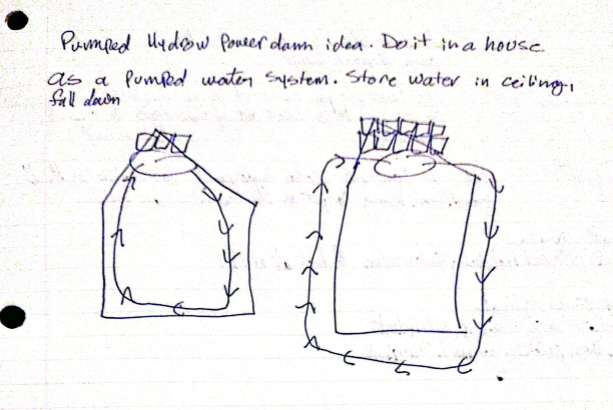 Pumped Hydrow Power dam idea. Do it in a house
as a pumped water system. Store water in ceiling,
fall down